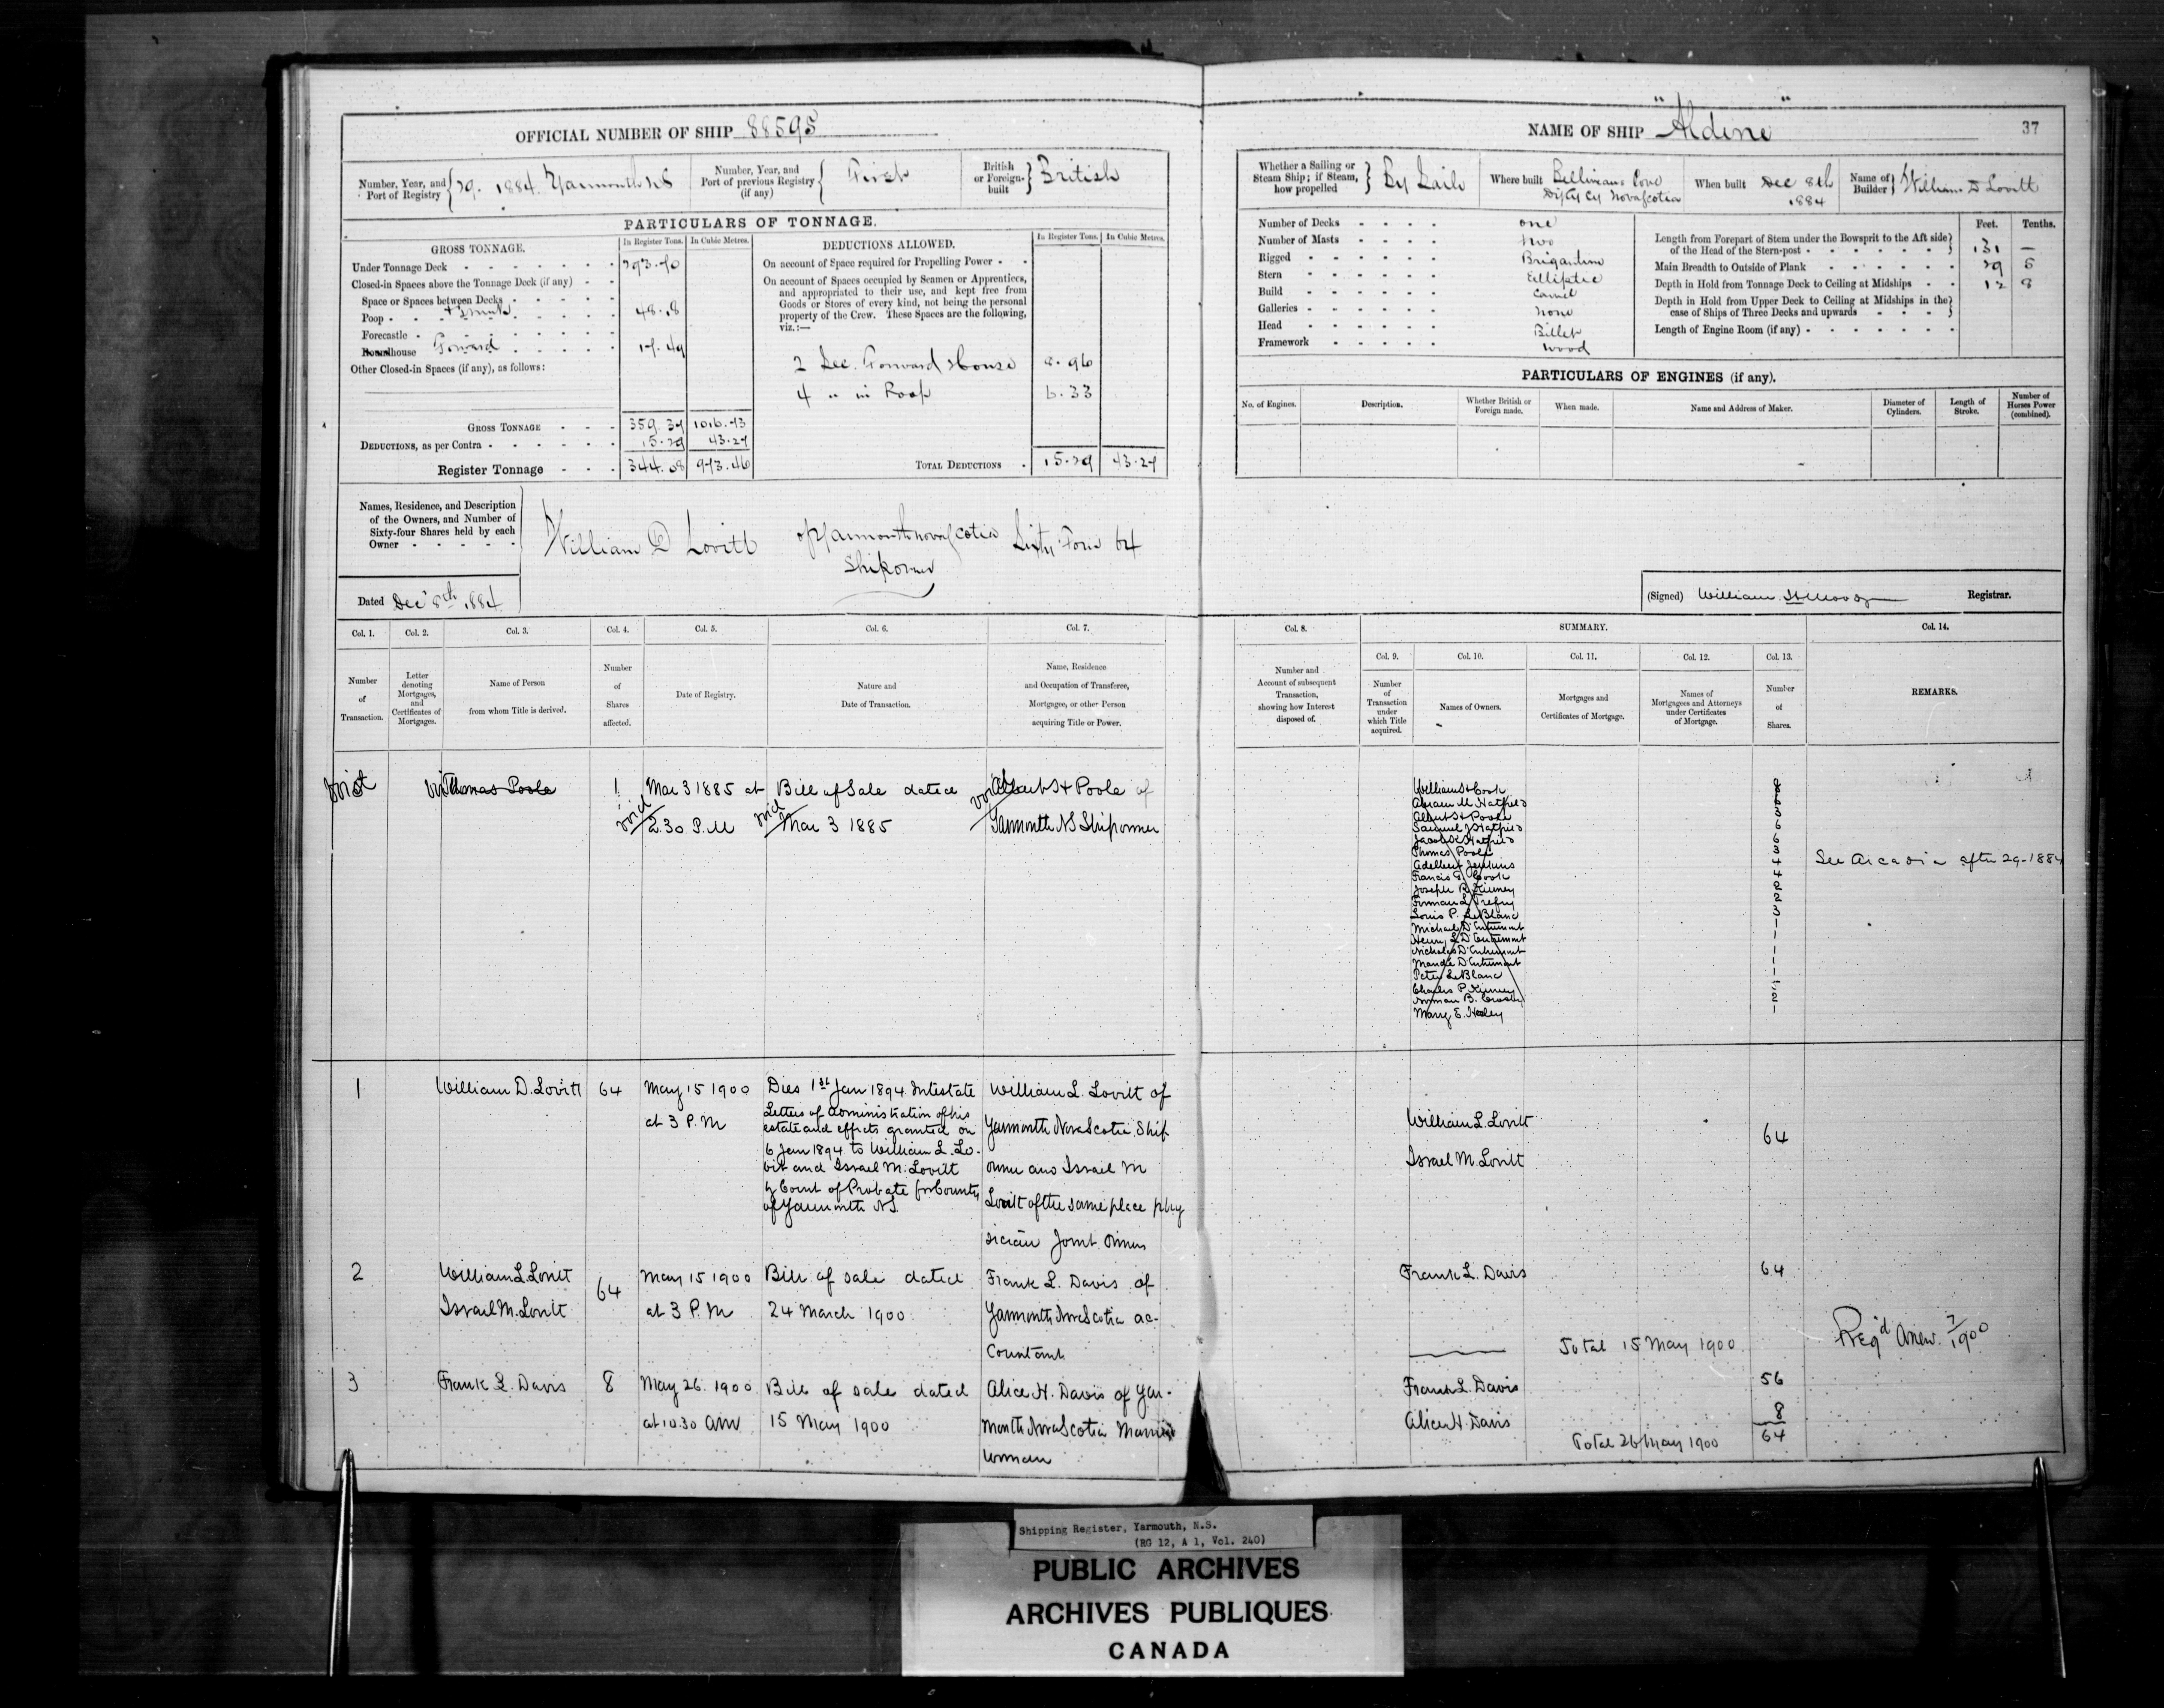 OFFICIAL NUMBER OF SHIP 88595
Number, Year, and Port of Registry 29. 1884. Yarmouth NS
Number, Year, and Port of previous Registry (if any) First
British or Foreign-built British
PARTICULARS OF TONNAGE.
GROSS TONNAGE.
In Register Tons. In Cubic Metres.
Under Tonnage Deck 293.70
Closed-in Spaces above the Tonnage Deck (if any)
Space or Spaces between Decks
Poop 48.18
Forecastle
Roundhouse Forward 17.49
Other Closed-in Spaces (if any), as follows:
GROSS TONNAGE 359.37 1016.73
DEDUCTIONS, as per Contra 15.29 43.27
Register Tonnage 344.08 973.46
DEDUCTIONS ALLOWED.
In Register Tons. In Cubic Metres.
On account of Space required for Propelling Power
On account of Spaces occupied by Seamen or Apprentices,
and appropriated to their use, and kept free from
Goods or Stores of every kind, not being the personal
property of the Crew. These Spaces are the following,
viz.:—
2 Sec. Forward House 8.96
4 " in Poop 6.33
TOTAL DEDUCTIONS 15.29 43.27
Names, Residence, and Description
of the Owners, and Number of
Sixty-four Shares held by each
Owner
William D Lovitt of Yarmouth Nova Scotia Sixty Four 64
Shipowner
Dated Dec 8th 1884
NAME OF SHIP "Aldine" 37
Whether a Sailing or Steam Ship; if Steam, how propelled By Sails
Where built Bellineaus Cove Digby Cy Nova Scotia
When built Dec 8th 1884
Name of Builder William D Lovitt
Number of Decks one
Number of Masts two
Rigged Brigantine
Stern Elliptic
Build Carvel
Galleries none
Head Billet
Framework wood
Feet. Tenths.
Length from Forepart of Stem under the Bowsprit to the Aft side
of the Head of the Stern-post 131 —
Main Breadth to Outside of Plank 29 5
Depth in Hold from Tonnage Deck to Ceiling at Midships 12 8
Depth in Hold from Upper Deck to Ceiling at Midships in the
case of Ships of Three Decks and upwards
Length of Engine Room (if any)
PARTICULARS OF ENGINES (if any).
No. of Engines. Description. Whether British or Foreign made. When made. Name and Address of Maker. Diameter of Cylinders. Length of Stroke. Number of Horses Power (combined).
(Signed) William H Moody Registrar.
Col. 1. Col. 2. Col. 3. Col. 4. Col. 5. Col. 6. Col. 7.
Number of Transaction.
Letter denoting Mortgages, and Certificates of Mortgages.
Name of Person from whom Title is derived.
Number of Shares affected.
Date of Registry.
Nature and Date of Transaction.
Name, Residence and Occupation of Transferee, Mortgagee, or other Person acquiring Title or Power.
void void Thomas Poole 1 Mar 3 1885 at Bill of Sale dated void Albert H Poole of
void 2.30 P.M void Mar 3 1885 Yarmouth NS Shipowner
1 William D. Lovitt 64 May 15 1900 at 3 P.M
Dies 1st Jan 1894 Intestate
Letters of administration of his
estate and effects granted on
6 Jan 1894 to William L. Lo-
vitt and Israel M. Lovitt
by Court of Probate for County
of Yarmouth N.S.
William L. Lovitt of
Yarmouth Nova Scotia Ship
owner and Israel M
Lovitt of the same place phy
sician Joint Owners
2 William L. Lovitt
Israel M. Lovitt
64 May 15 1900 at 3 P.M
Bill of sale dated
24 March 1900
Frank L. Davis of
Yarmouth Nova Scotia ac-
countant
3 Frank L. Davis 8 May 26. 1900 at 10.30 am
Bill of sale dated
15 May 1900
Alice H. Davis of Yar-
mouth Nova Scotia Married
woman
Col. 8. SUMMARY. Col. 14.
Col. 9. Col. 10. Col. 11. Col. 12. Col. 13.
Number and Account of subsequent Transaction, showing how Interest disposed of.
Number of Transaction under which Title acquired.
Names of Owners.
Mortgages and Certificates of Mortgage.
Names of Mortgagees and Attorneys under Certificates of Mortgage.
Number of Shares.
REMARKS.
William H Cook
Abram M Hatfield
Albert H Poole
Samuel J Hatfield
Jacob K Hatfield
Thomas Poole
Adelbert Jenkins
Francis G Cook
Joseph R Kinney
Forman L Trefry
Louis P. LeBlanc
Michael D'Entremont
Henry L D'Entremont
Nicholas D'Entremont
Mande D'Entremont
Peter LeBlanc
Charles P Kinney
Norman B. Crosby
Mary E. Haley
See Arcadia after 29-1884
William L. Lovitt
64
Israel M. Lovitt
Frank L. Davis 64
Total 15 May 1900
Reg'd Anew. 7/1900
Frank L. Davis 56
Alice H. Davis 8
Total 26 May 1900 64
Shipping Register, Yarmouth, N.S.
(RG 12, A 1, Vol. 240)
PUBLIC ARCHIVES
ARCHIVES PUBLIQUES
CANADA